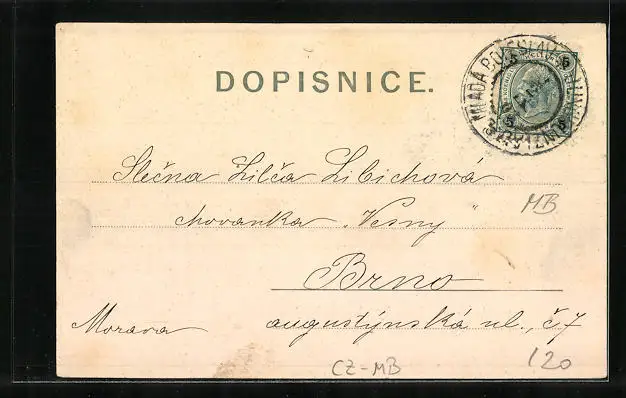 DOPISNICE.
MLADÁ BOLESLAV
5
Slečna Lilča Libichová
chovanka „Vesny"
MB
Brno
Morava
augustýnská ul., č 7
CZ-MB
120